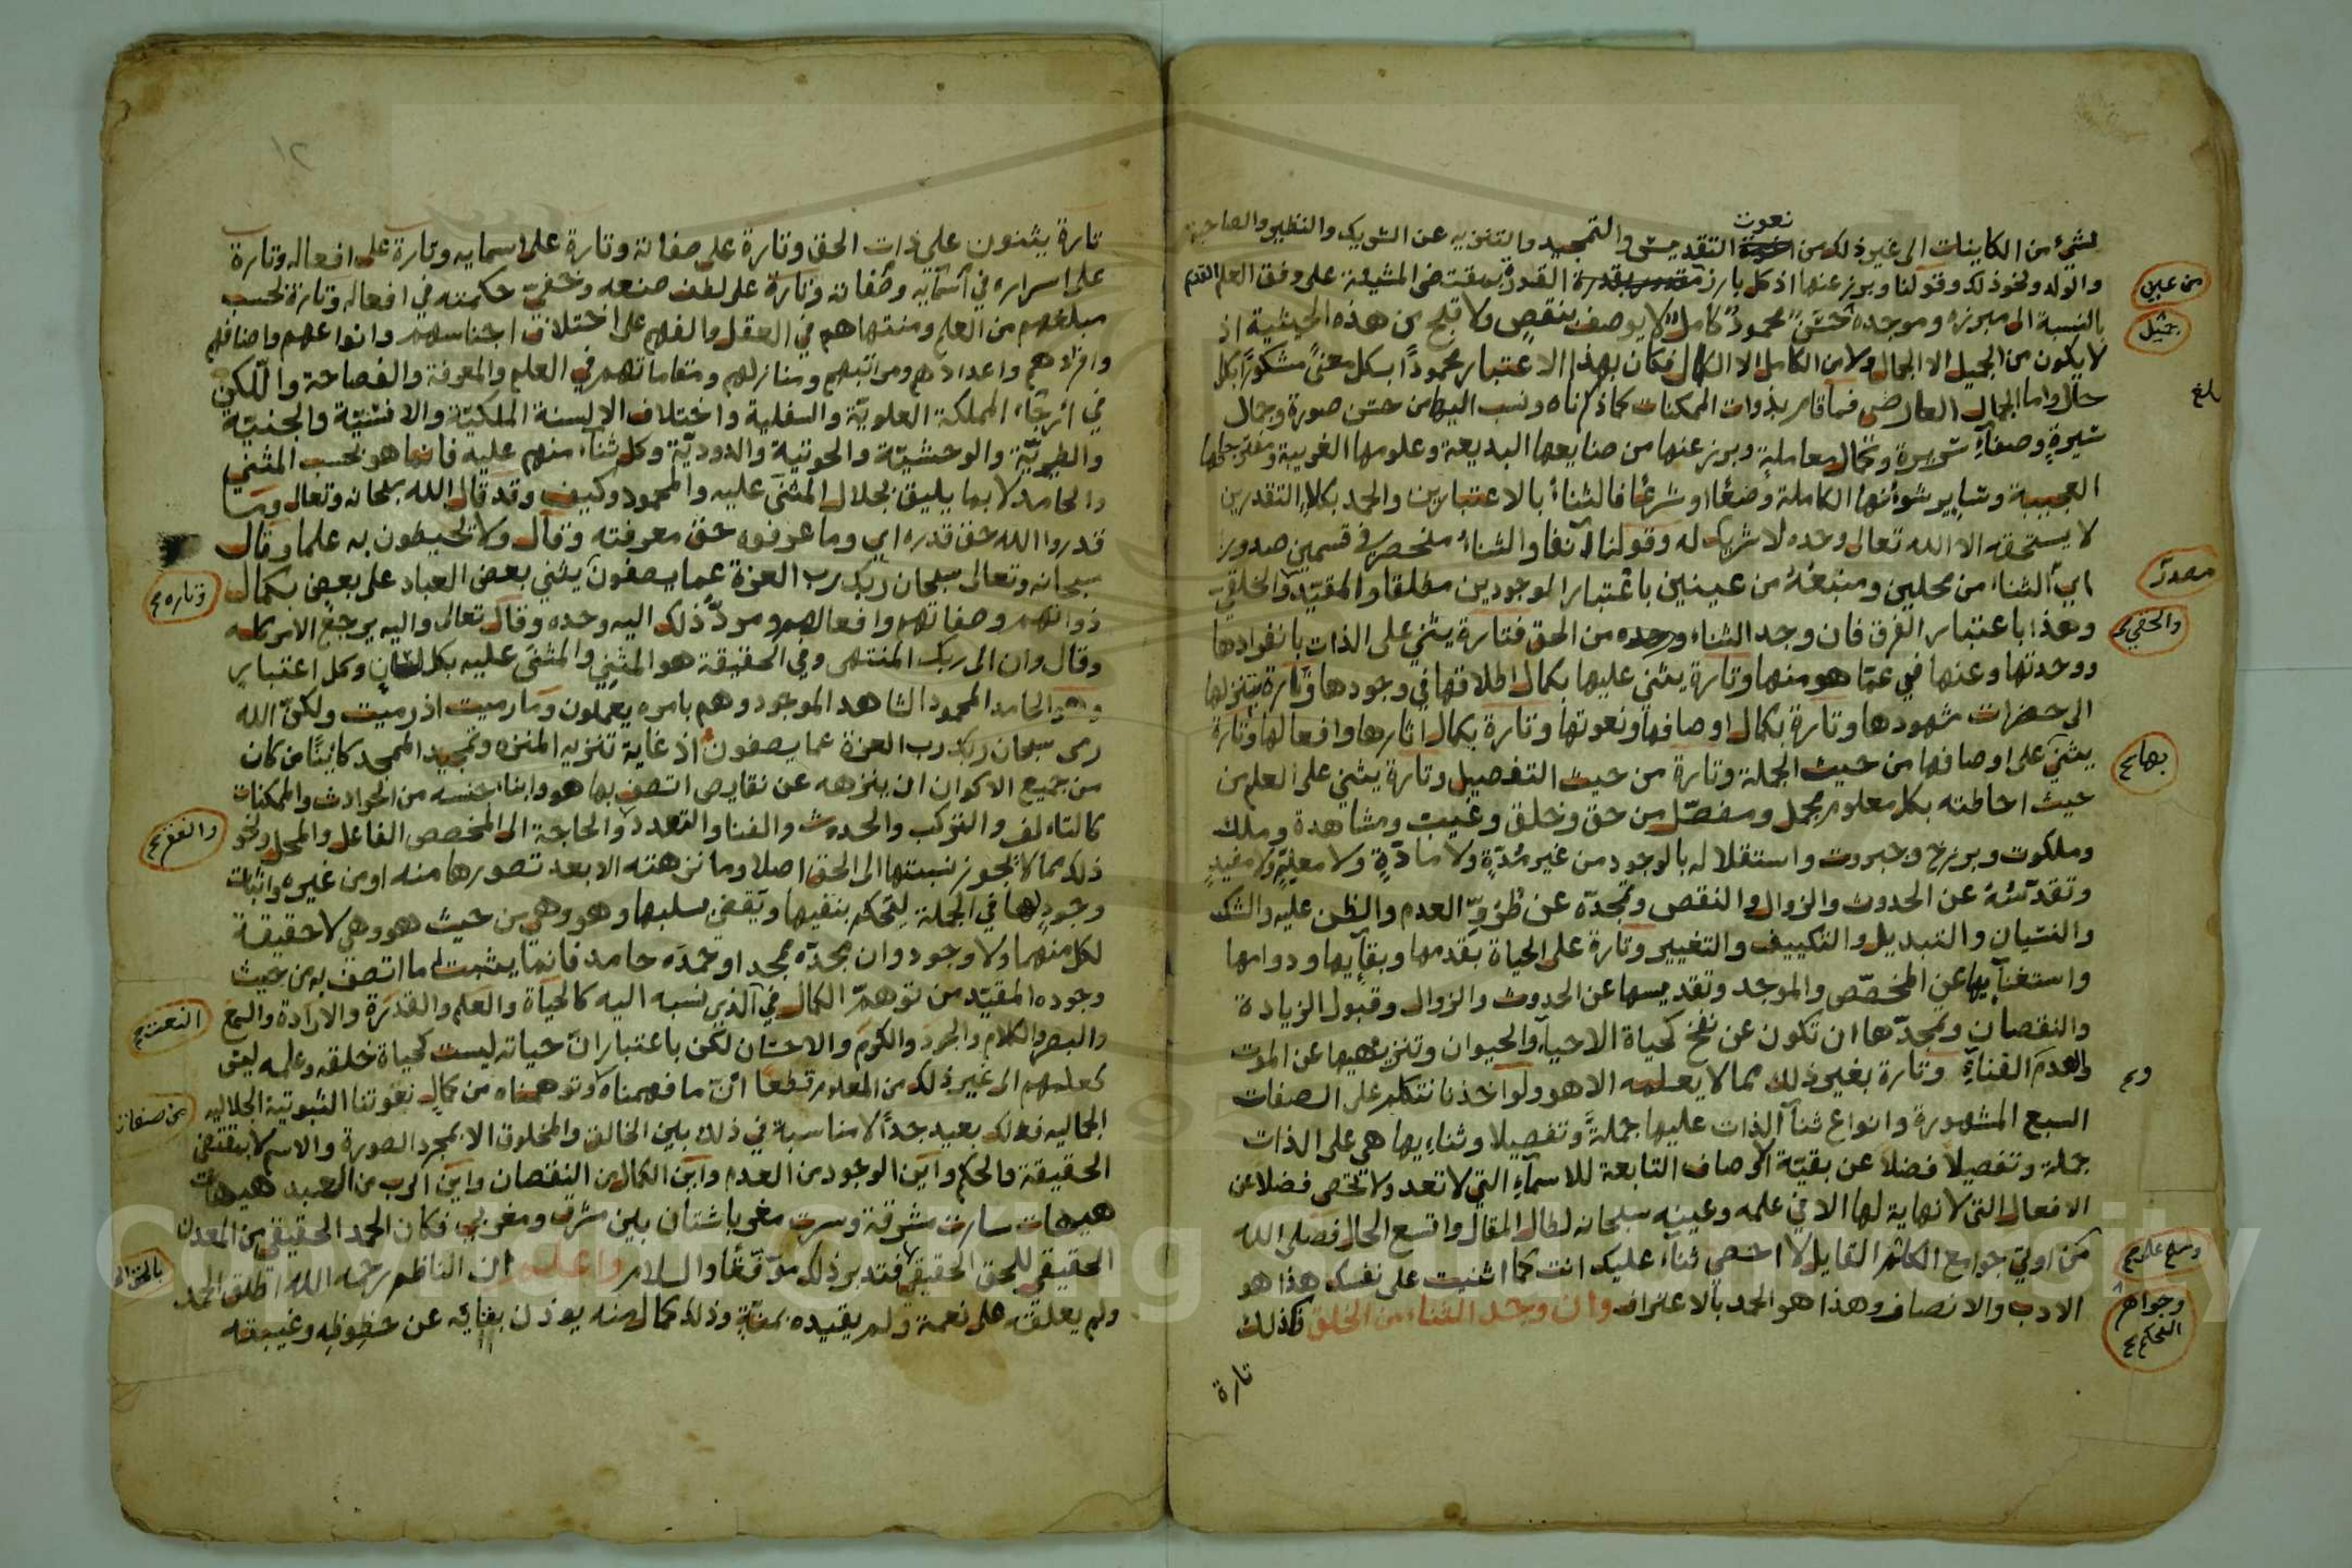 نعوت
لشيء من الكاينات الى غير ذلك من التقديس والتمجيد والتنزيه عن الشريك والنظير والصاحبة
والولد ونحو ذلك وقولنا وبرز عنها اذ كل بارز القدرة بمقتضى المشيئة على وفق العلم القديم
بالنسبة الى مبرزه وموجده حسن محمود كامل لا يوصف بنقص ولا قبح من هذه الحيثية اذ
لا يكون من الجميل الا الجمال ولا من الكامل الا الكمال فكان بهذا الاعتبار محمودا بكل معنى مشكورا بكل
حال واما الجمال العارضي فما قام بذوات الممكنات كما ذكرناه ونسب اليها من حسن صورة وجمال
سيرة وصفاء سريرة وكمال معاملة وبرز عنها من صنايعها البديعة وعلومها الغريبة
العجيبة وساير شوءنها الكاملة وضعا وشرعا فالثناء بالاعتبارين والحمد بكلا التقدرين
لا يستحقه الا الله تعالى وحده لا شريك له وقولنا آنفا والثناء منحصر في قسمين صدور
اي الثناء من محلين ومنبعه من عينين باعتبار الموجودين مطلقا والمقيد والخلقي
وهذا باعتبار الفرق فان وجد الثناء وحده من الحق فتارة يثني على الذات بانفرادها
ووحدتها وعنها في عما هو منها وتارة يثني عليها بكمال اطلاقها في وجودها وتارة بتنزلها
الى حضرات شهودها وتارة بكمال اوصافها ونعوتها وتارة بكمال اثارها وافعالها وتارة
يثني على اوصافها من حيث الجملة وتارة من حيث التفصيل وتارة يثني على العلم من
حيث احاطته بكل معلوم مجمل ومفصل من حق وخلق وغيب ومشاهدة وملك
وملكوت وبرزخ وجبروت واستقلاله بالوجود من غير مدة ولا مادة ولا معلية ولا مفيد
وتقدسه عن الحدوث والزوال والنقص وتمجده عن طرو العدم والظن عليه والشك
والنسيان والتبديل والتكييف والتغيير وتارة على الحياة بقدمها وبقآيها ودوامها
واستغنآيها عن المخصص والموجد وتقديسها عن الحدوث والزوال وقبول الزيادة
والنقصان وتمجدها ان تكون عن نفخ كحياة الاحياء والحيوان وتنزيهها عن الموت
والعدم الفناء وتارة بغير ذلك مما لا يعلمه الا هو ولو اخذنا نتكلم على الصفات
السبع المشهورة وانواع ثنآ الذات عليها جملة وتفصيلا وثناءيها هي على الذات
جملة وتفصيلا فضلا عن بقية الاوصاف التابعة للاسمآء التي لا تعد ولا تحصى فضلا عن
الافعال التي لا نهاية لها الا في علمه وعينه سبحانه لطال المقال واتسع الحال فصلى الله
من اوتي جوامع الكلم القايل لا احصي ثناء عليك انت كما اثنيت على نفسك هذا هو
الادب والانصاف وهذا هو الحمد بالاعتراف وان وجد الثناء من الخلق فكذلك
تارة
من عين
جميل
بلغ
مصدر
والحقي
بها
و
وسلم عليه
وجواهر
الحكم
تارة يثنون على ذات الحق وتارة على صفاته وتارة على اسمايه وتارة على افعاله وتارة
على اسراره في اسمآيه وصفاته وتارة على لطف صنعه وخفي حكمته في افعاله وتارة بحسب
مبلغهم من العلم ومنتهاهم في العقل والفهم على اختلاف اجناسهم وانواعهم واصنافهم
وافرادهم واعدادهم ومراتبهم ومنازلهم ومقاماتهم في العلم والمعرفة والفصاحة واللكن
في ارجاء المملكة العلوية والسفلية واختلاف الالسنة الملكية والانسية والجنية
والطيرية والوحشية والحوتية والدودية وكل ثناء منهم عليه فانما هو بحسب المثني
والحامد لا بما يليق بجلال المثنى عليه والمحمود وكيف وقد قال الله سبحانه وتعالى وما
قدروا الله حق قدره اي وما عرفوه حق معرفته وقال ولا تحيطون به علما وقال
سبحانه وتعالى سبحان ربك رب العزة عما يصفون يثني بعض العباد على بعض بكمال
ذواتهم وصفاتهم وافعالهم ومرد ذلك اليه وحده وقال تعالى واليه يرجع الامر كله
وقال وان الى ربك المنتهى وفي الحقيقة هو المثني والمثنى عليه بكل لسان وكل اعتبار
وهو الحامد المحمود الشاهد الموجود وهم بامره يعملون وما رميت اذ رميت ولكن الله
رمى سبحان ربك رب العزة عما يصفون اذ غاية تنزيه المنزه وتمجيد الممجد كائنا من كان
من جميع الاكوان ان ينزهه عن نقايص اتصف بها هو وابناء جنسه من الحوادث والممكنات
كالتاءلف والتركب والحدوث والفنا والتعدد والحاجة الى المخصص الفاعل والمحل ونحو
ذلك مما لا تجوز نسبتها الى الحق اصلا وما نزهته الا بعد تصورها منه او من غيره واثبات
وجود لها في الجملة ليحكم بنفيها ويقضى بسلبها وهو وهي من حيث هو وهي لا حقيقة
لكل منهما ولا وجود وان مجده ممجد او حمده حامد فانما يثبت له ما اتصف به من حيث
وجوده المقيد من توهم الكمال في الذي نسبه اليه كالحياة والعلم والقدرة والارادة والسمع
والبصر والكلام والجود والكرم والاحسان لكن باعتبار ان حياته ليست كحياة خلقه وعلمه ليس
كعلمهم الى غير ذلك من المعلوم قطعا ان ما فهمناه وتوهمناه من كمال نعوتنا الثبوتية الجلاليه
الجماليه فذلك بعيد جدا لا مناسبة في ذلك بين الخالق والمخلوق الا بمجرد الصورة والاسم لا بمقتضى
الحقيقة والحكم واين الوجود من العدم واين الكمال من النقصان واين الرب من العبد هيهات
هيهات سارت مشرقة وسرت مغربا شتان بين مشرق ومغرب فكان الحمد الحقيقي من المعدن
الحقيقي للحق الحقيقي فتدبر ذلك موفقا والسلام واعلم ان الناظم رحمه الله اطلق الحمد
ولم يعلقه على نعمة ولم يقيده بمنة وذلك كمال منه يوذن بفنايه عن حظوظه وغيبته
وتاره
النعت
من صفات
١٢
Copyright © King Saud University